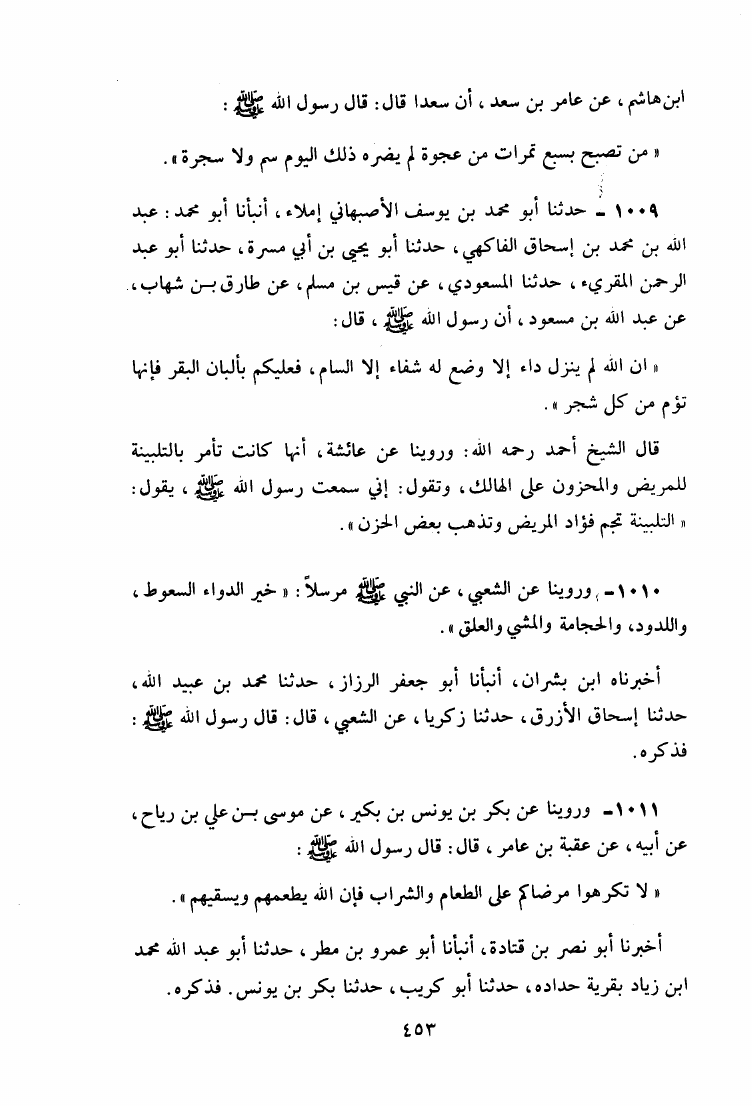 ابن هاشم ، عن عامر بن سعد ، أن سعدا قال : قال رسول الله ﷺ :
« من تصبح بسبع تمرات من عجوة لم يضره ذلك اليوم سم ولا سجرة » .
١٠٠٩ ـ حدثنا أبو محمد بن يوسف الأصبهاني إملاء ، أنبأنا أبو محمد : عبد
الله بن محمد بن إسحاق الفاكهي ، حدثنا أبو يحيى بن أبي مسرة ، حدثنا أبو عبد
الرحمن المقريء ، حدثنا المسعودي ، عن قيس بن مسلم ، عن طارق بـن شهاب ،
عن عبد الله بن مسعود ، أن رسول الله ﷺ ، قال :
« ان الله لم ينزل داء إلا وضع له شفاء إلا السام ، فعليكم بألبان البقر فإنها
تؤم من كل شجر » .
قال الشيخ أحمد رحمه الله : وروينا عن عائشة ، أنها كانت تأمر بالتلبينة
للمريض والمحزون على الهالك ، وتقول : إني سمعت رسول الله ﷺ ، يقول :
« التلبينة تجم فؤاد المريض وتذهب بعض الحزن » .
١٠١٠ ـ وروينا عن الشعبي ، عن النبي ﷺ مرسلاً : « خير الدواء السعوط ،
واللدود ، والحجامة والمشي والعلق » .
أخبرناه ابن بشران ، أنبأنا أبو جعفر الرزاز ، حدثنا محمد بن عبيد الله ،
حدثنا إسحاق الأزرق ، حدثنا زكريا ، عن الشعبي ، قال : قال رسول الله ﷺ :
فذكره .
١٠١١ ـ وروينا عن بكر بن يونس بن بكير ، عن موسى بـن علي بن رياح ،
عن أبيه ، عن عقبة بن عامر ، قال : قال رسول الله ﷺ :
« لا تكرهوا مرضاكم على الطعام والشراب فإن الله يطعمهم ويسقيهم » .
أخبرنا أبو نصر بن قتادة ، أنبأنا أبو عمرو بن مطر ، حدثنا أبو عبد الله محمد
ابن زياد بقرية حداده ، حدثنا أبو كريب ، حدثنا بكر بن يونس . فذكره .
٤٥٣